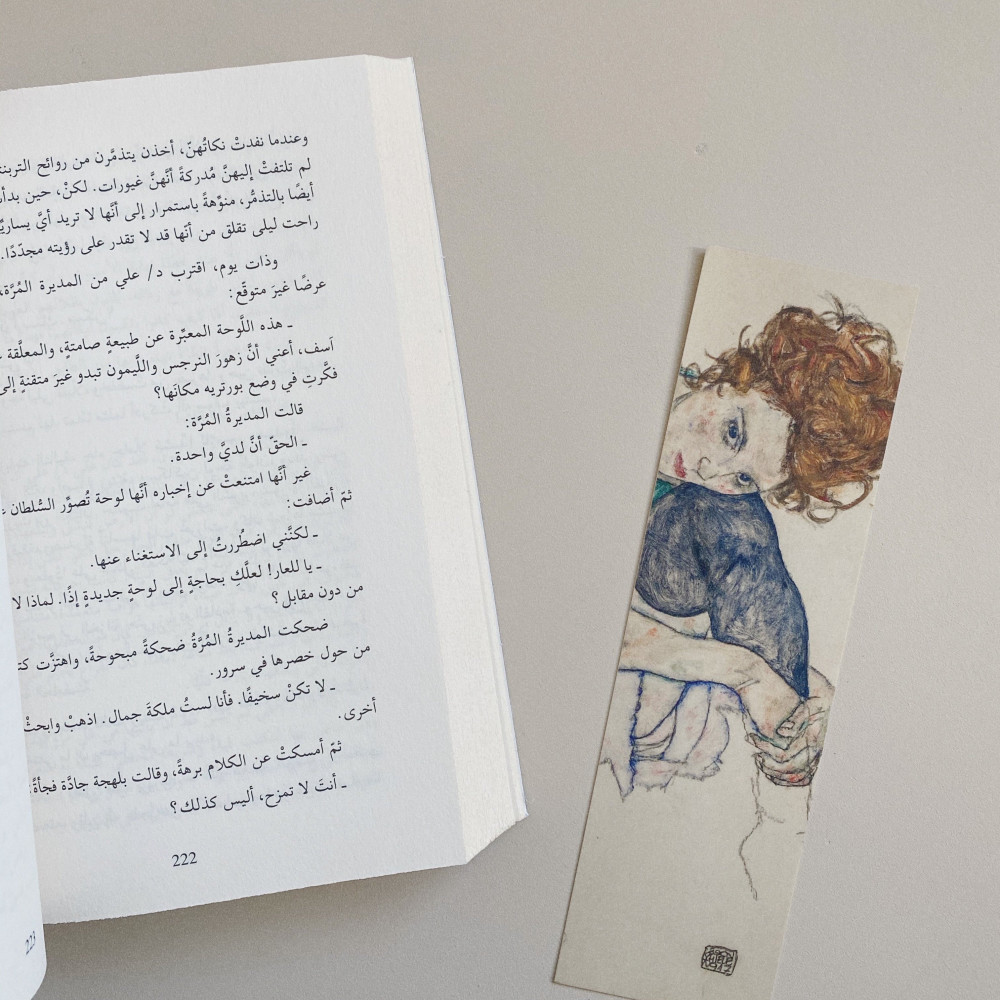 وعندما نفدتْ نكاتُهنّ، أخذن يتذمَّرن من روائح
لم تلتفتْ إليهنَّ مُدركةً أنَّهنَّ غيورات. لكنْ، حين
أيضًا بالتذمُّر، منوِّهةً باستمرار إلى أنَّها لا تريد أيَّ
راحت ليلى تقلق من أنّها قد لا تقدر على رؤيته مجدّدًا.
وذات يوم، اقترب د/ علي من المديرة المُرَّة،
عرضًا غيرَ متوقّع:
ـ هذه اللَّوحة المعبِّرة عن طبيعةٍ صامتةٍ، والمعلَّقة
آسف، أعني أنَّ زهورَ النرجس واللَّيمون تبدو غيرَ متقنةٍ إلى
فكَّرتِ في وضع بورتريه مكانَها؟
قالت المديرةُ المُرَّة:
ـ الحقّ أنَّ لديَّ واحدة.
غير أنَّها امتنعتْ عن إخباره أنَّها لوحة تُصوِّر السُّلطان
ثمّ أضافت:
ـ لكنَّني اضطُررتُ إلى الاستغناء عنها.
ـ يا للعار! لعلَّكِ بحاجةٍ إلى لوحةٍ جديدةٍ إذًا. لماذا لا
من دون مقابل؟
ضحكت المديرةُ المُرَّةُ ضحكةً مبحوحةً، واهتزَّت
من حول خصرها في سرور.
ـ لا تكنْ سخيفًا. فأنا لستُ ملكةَ جمال. اذهبْ وابحثْ
أخرى.
ثمّ أمسكتْ عن الكلام برهةً، وقالت بلهجة جادَّة فجأةً
ـ أنتَ لا تمزح، أليس كذلك؟
222
223